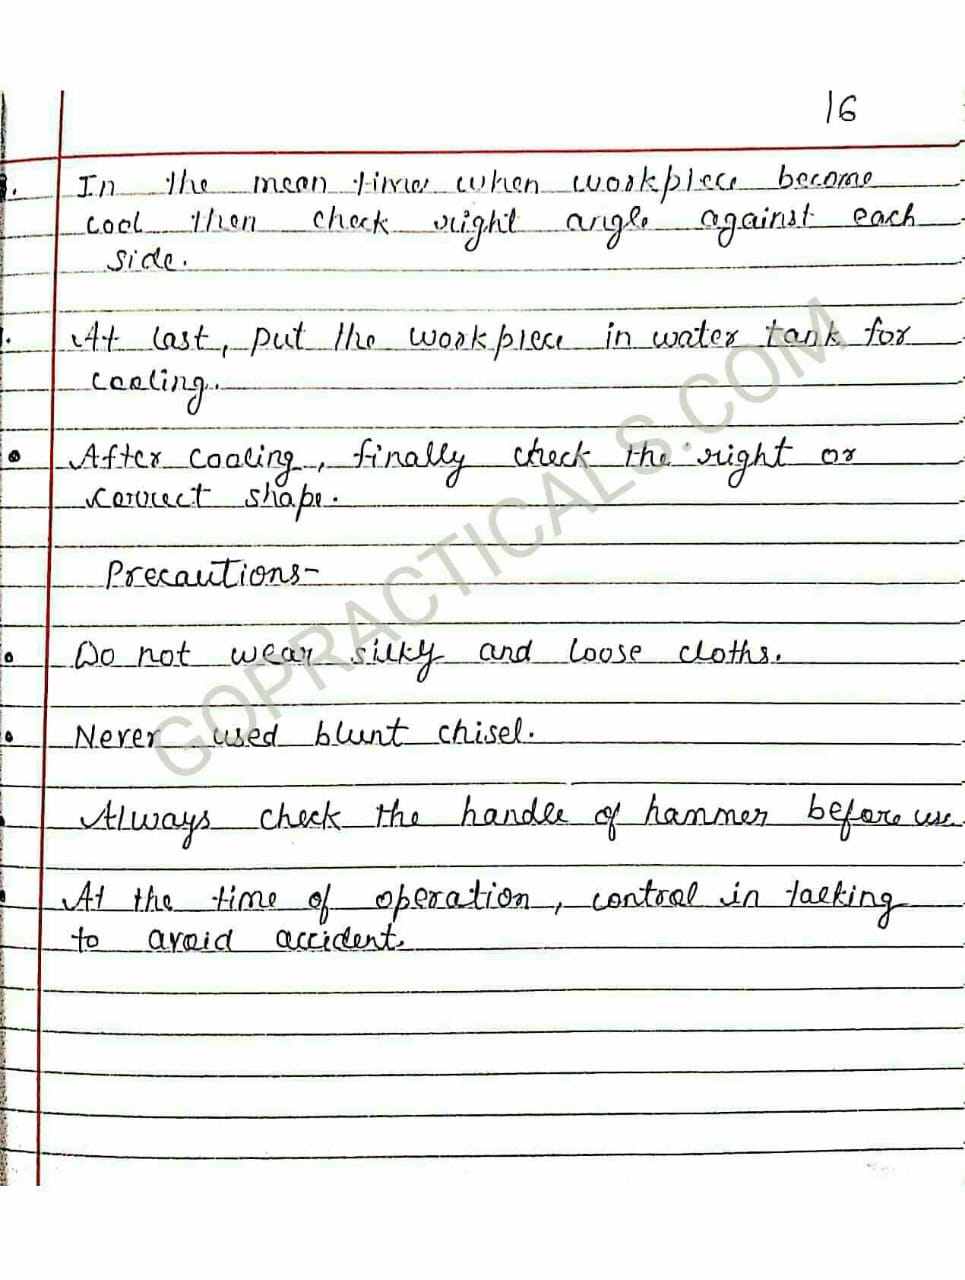 16
In the mean time when workpiece become
cool then check right angle against each
side.
At last, put the workpiece in water tank for
cooling.
After cooling, finally check the right or
correct shape.
Precautions-
Do not wear silky and loose cloths.
Never used blunt chisel.
Always check the handle of hammer before use
At the time of operation, control in talking
to avoid accident.
GOPRACTICALS.COM